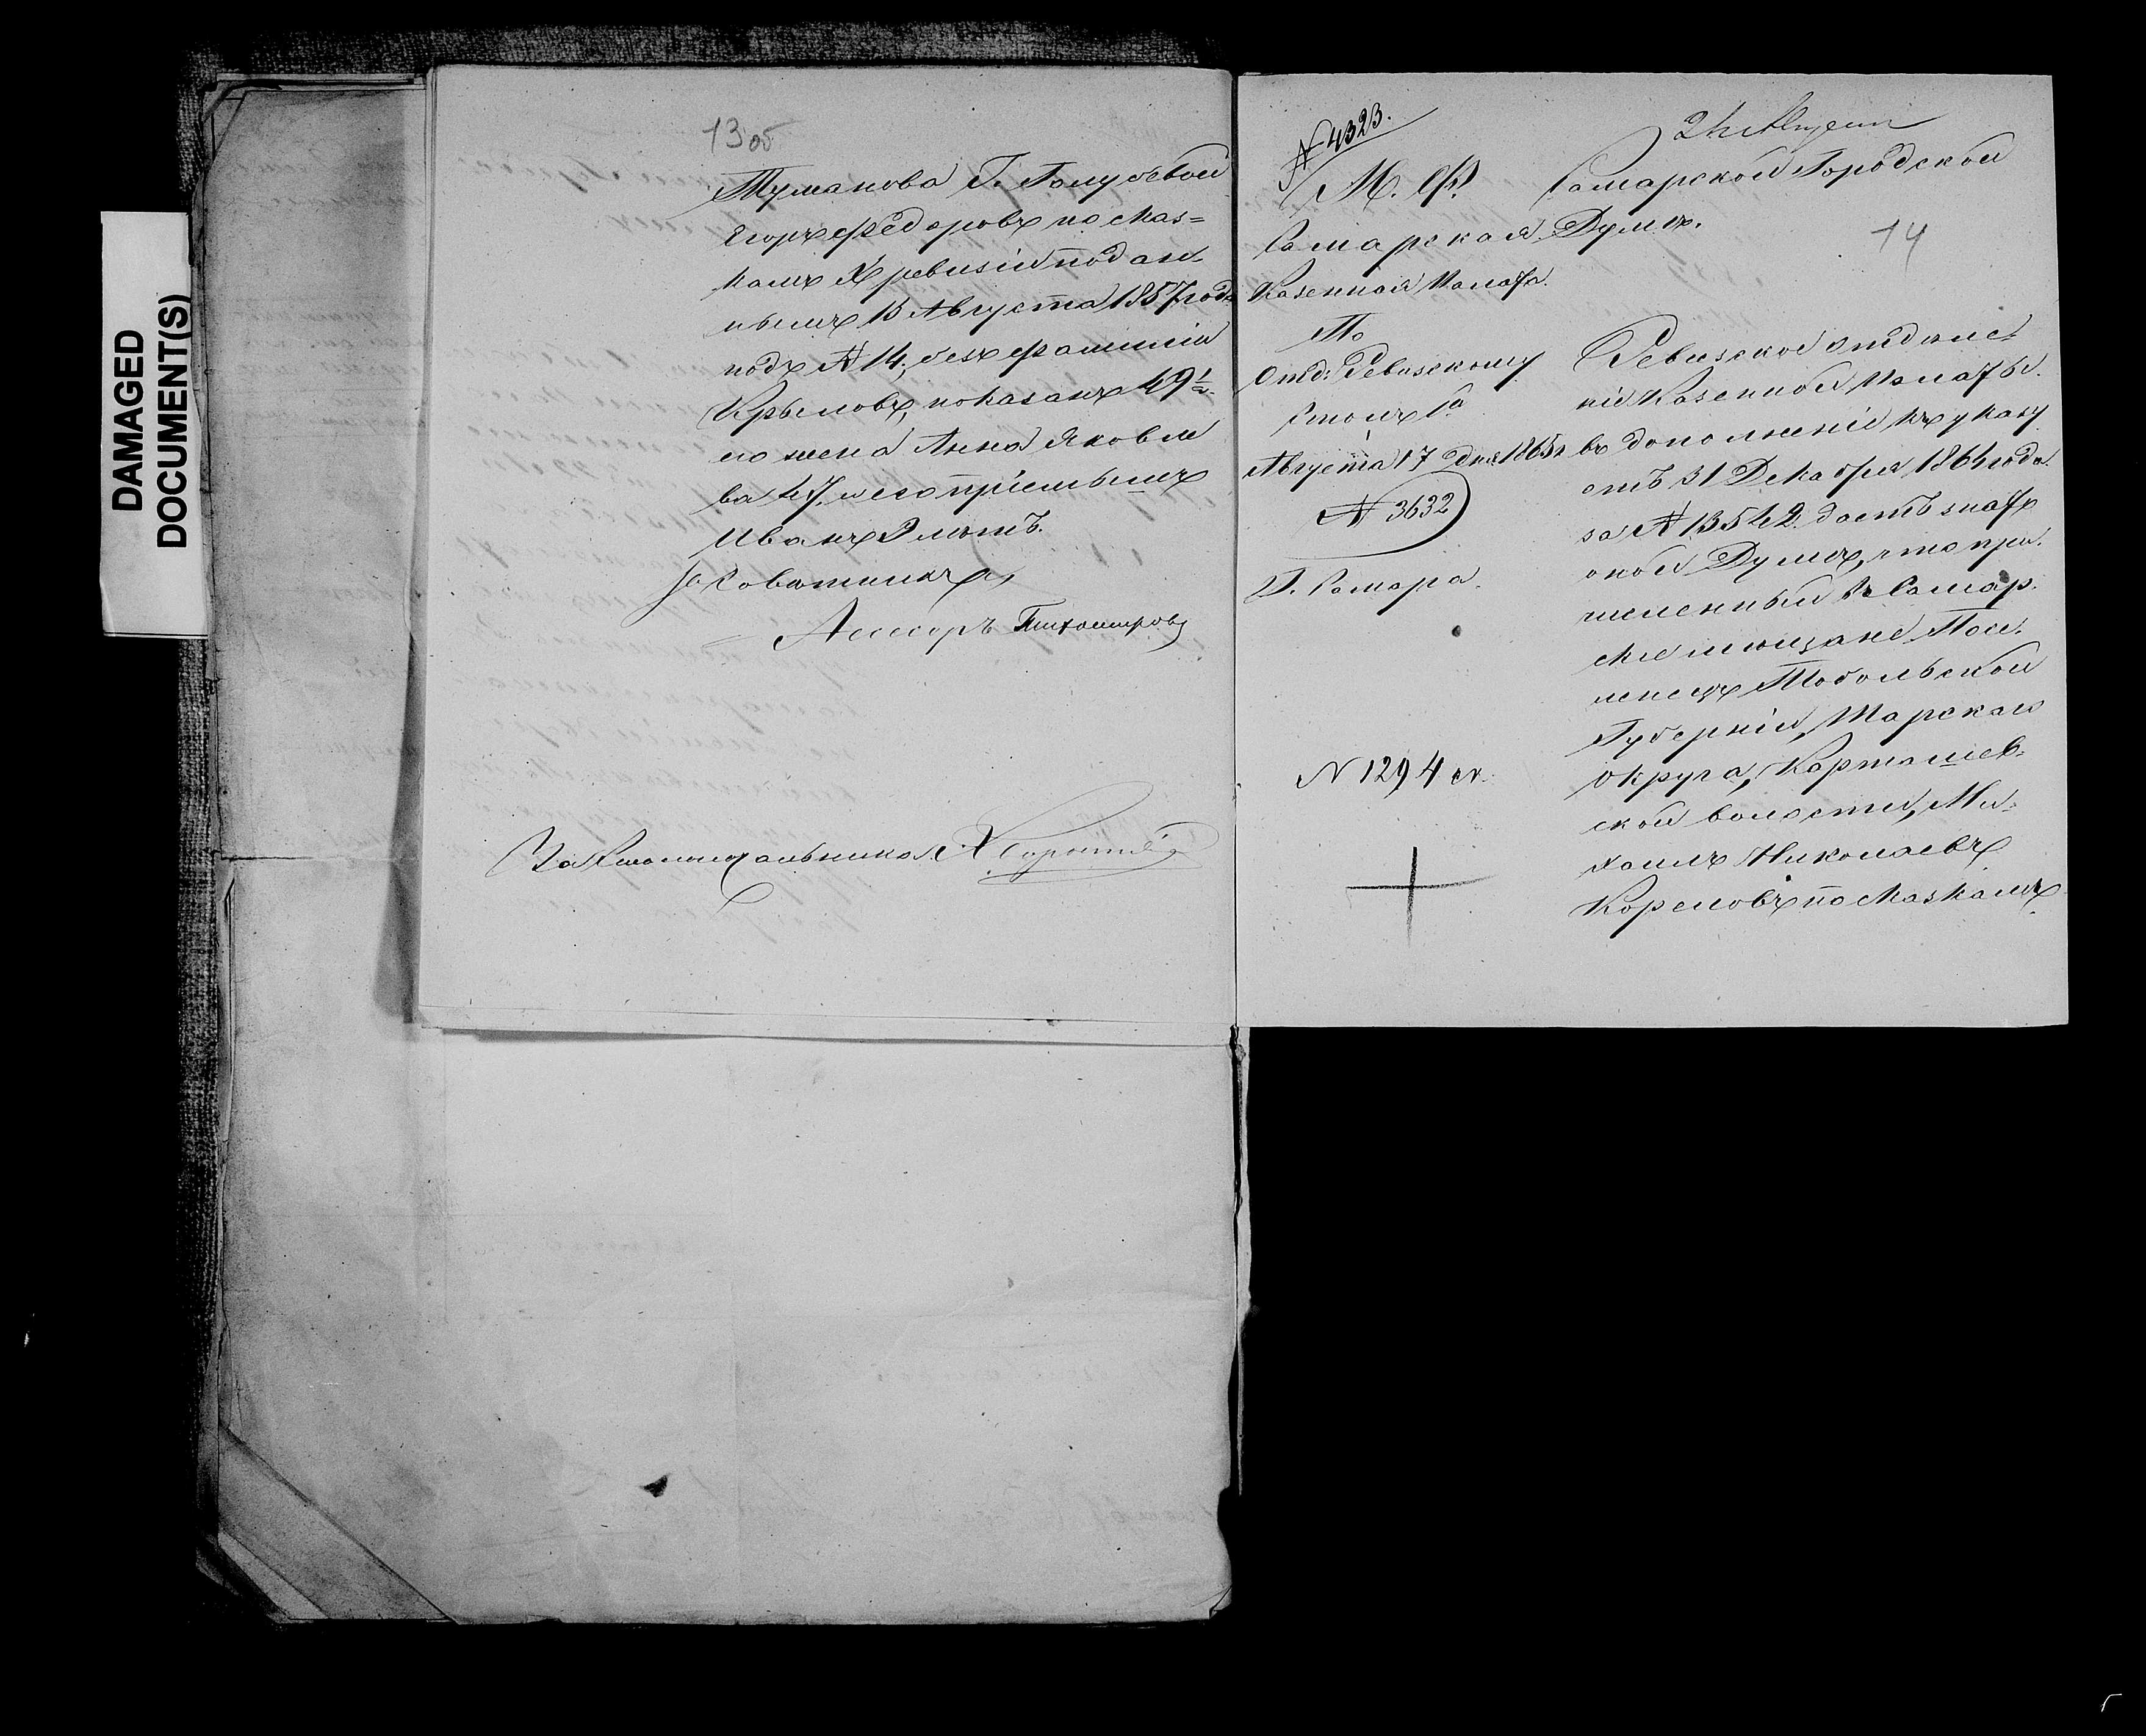 DAMAGED
DOCUMENT(S)
13 об
Туманова Г. Голубевой
Егоръ Федоровъ по сказ=
камъ X ревизіи подан-
нымъ 13 Августа 1857 года
подъ № 14, безъ фамиліи
Крыловъ, показанъ 49 1/2
его жена Анна Яковле
ва 47. и его пріемышъ
Иванъ 2 лѣтъ.
За Совѣтника
Асессоръ Тихомировъ
За Столоначальника
№ 4323.
М. Ф.
Самарская
Казенная Палата.
По
Отд: Ревизскому
Столъ 1й
Августа 17 дня 1865 г
№ 3632
Г. Самара.
N 1294
24 Августа
Самарской Городской
Думѣ.
14
Ревизское отдѣле-
ніе Казенной Палаты
въ дополненіе къ указу
отъ 31 Декабря 1864 года
за № 13542. даетъ знать
оной Думѣ, что при-
численный въ Самар-
скіе мѣщане Посе-
ленецъ Тобольской
Губерніи, Тарскаго
Округа, Карташев-
ской волости, Ми-
хаилъ Николаевъ
Кореловъ по сказкамъ